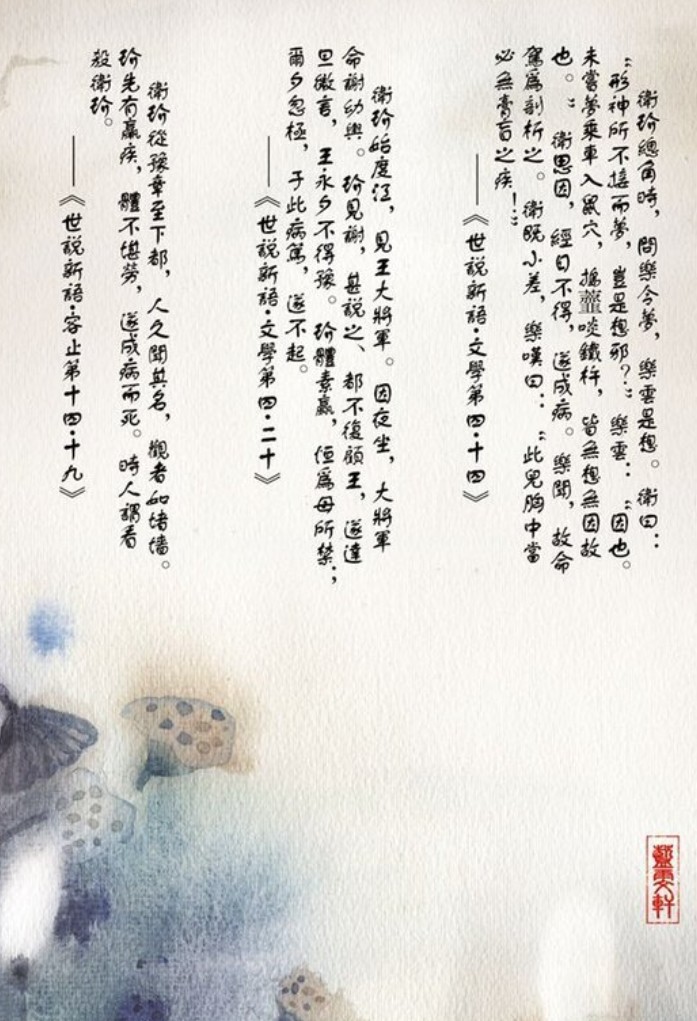 衛玠總角時，問樂令夢，樂雲是想。衛曰：
“形神所不接而夢，豈是想邪？”樂雲：“因也。
未嘗夢乘車入鼠穴，搗韲啖鐵杵，皆無想無因故
也。”衛思因，經日不得，遂成病。樂聞，故命
駕爲剖析之。衛既小差，樂嘆曰：“此兒胸中當
必無膏肓之疾！”
——《世説新語·文學第四·十四》
衛玠始度江，見王大將軍。因夜坐，大將軍
命謝幼輿。玠見謝，甚説之、都不復顧王，遂達
旦微言，王永夕不得豫。玠體素羸，恆爲母所禁；
爾夕忽極，于此病篤，遂不起。
——《世説新語·文學第四·二十》
衛玠從豫章至下都，人久聞其名，觀者如堵墻。
玠先有羸疾，體不堪勞，遂成病而死。時人謂看
殺衛玠。
——《世説新語·容止第十四·十九》
藍雲軒